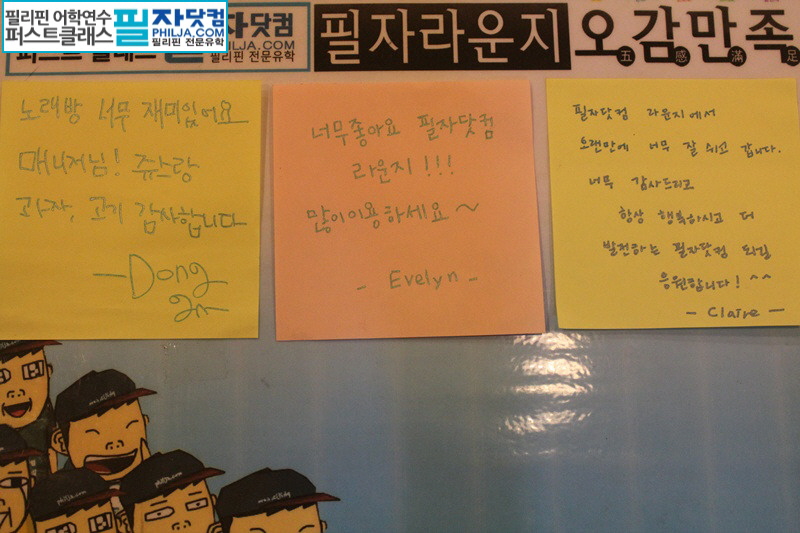 필리핀 어학연수
퍼스트클래스
필자닷컴
PHILJA.COM
필리핀 전문유학
자닷컴
JA.COM
필리핀 전문유학
필자라운지 오감만족
五感滿足
노래방 너무 재미있어요
매니저님! 쥬스랑
과자, 고기 감사합니다
-Dong
너무좋아요 필자닷컴
라운지!!!
많이이용하세요~
- Evelyn -
필자닷컴 라운지에서
오랜만에 너무 잘 쉬고 갑니다.
너무 감사드리고
항상 행복하시고 더
발전하는 필자닷컴 되길
응원합니다! ^^
- Claire -
philja.com